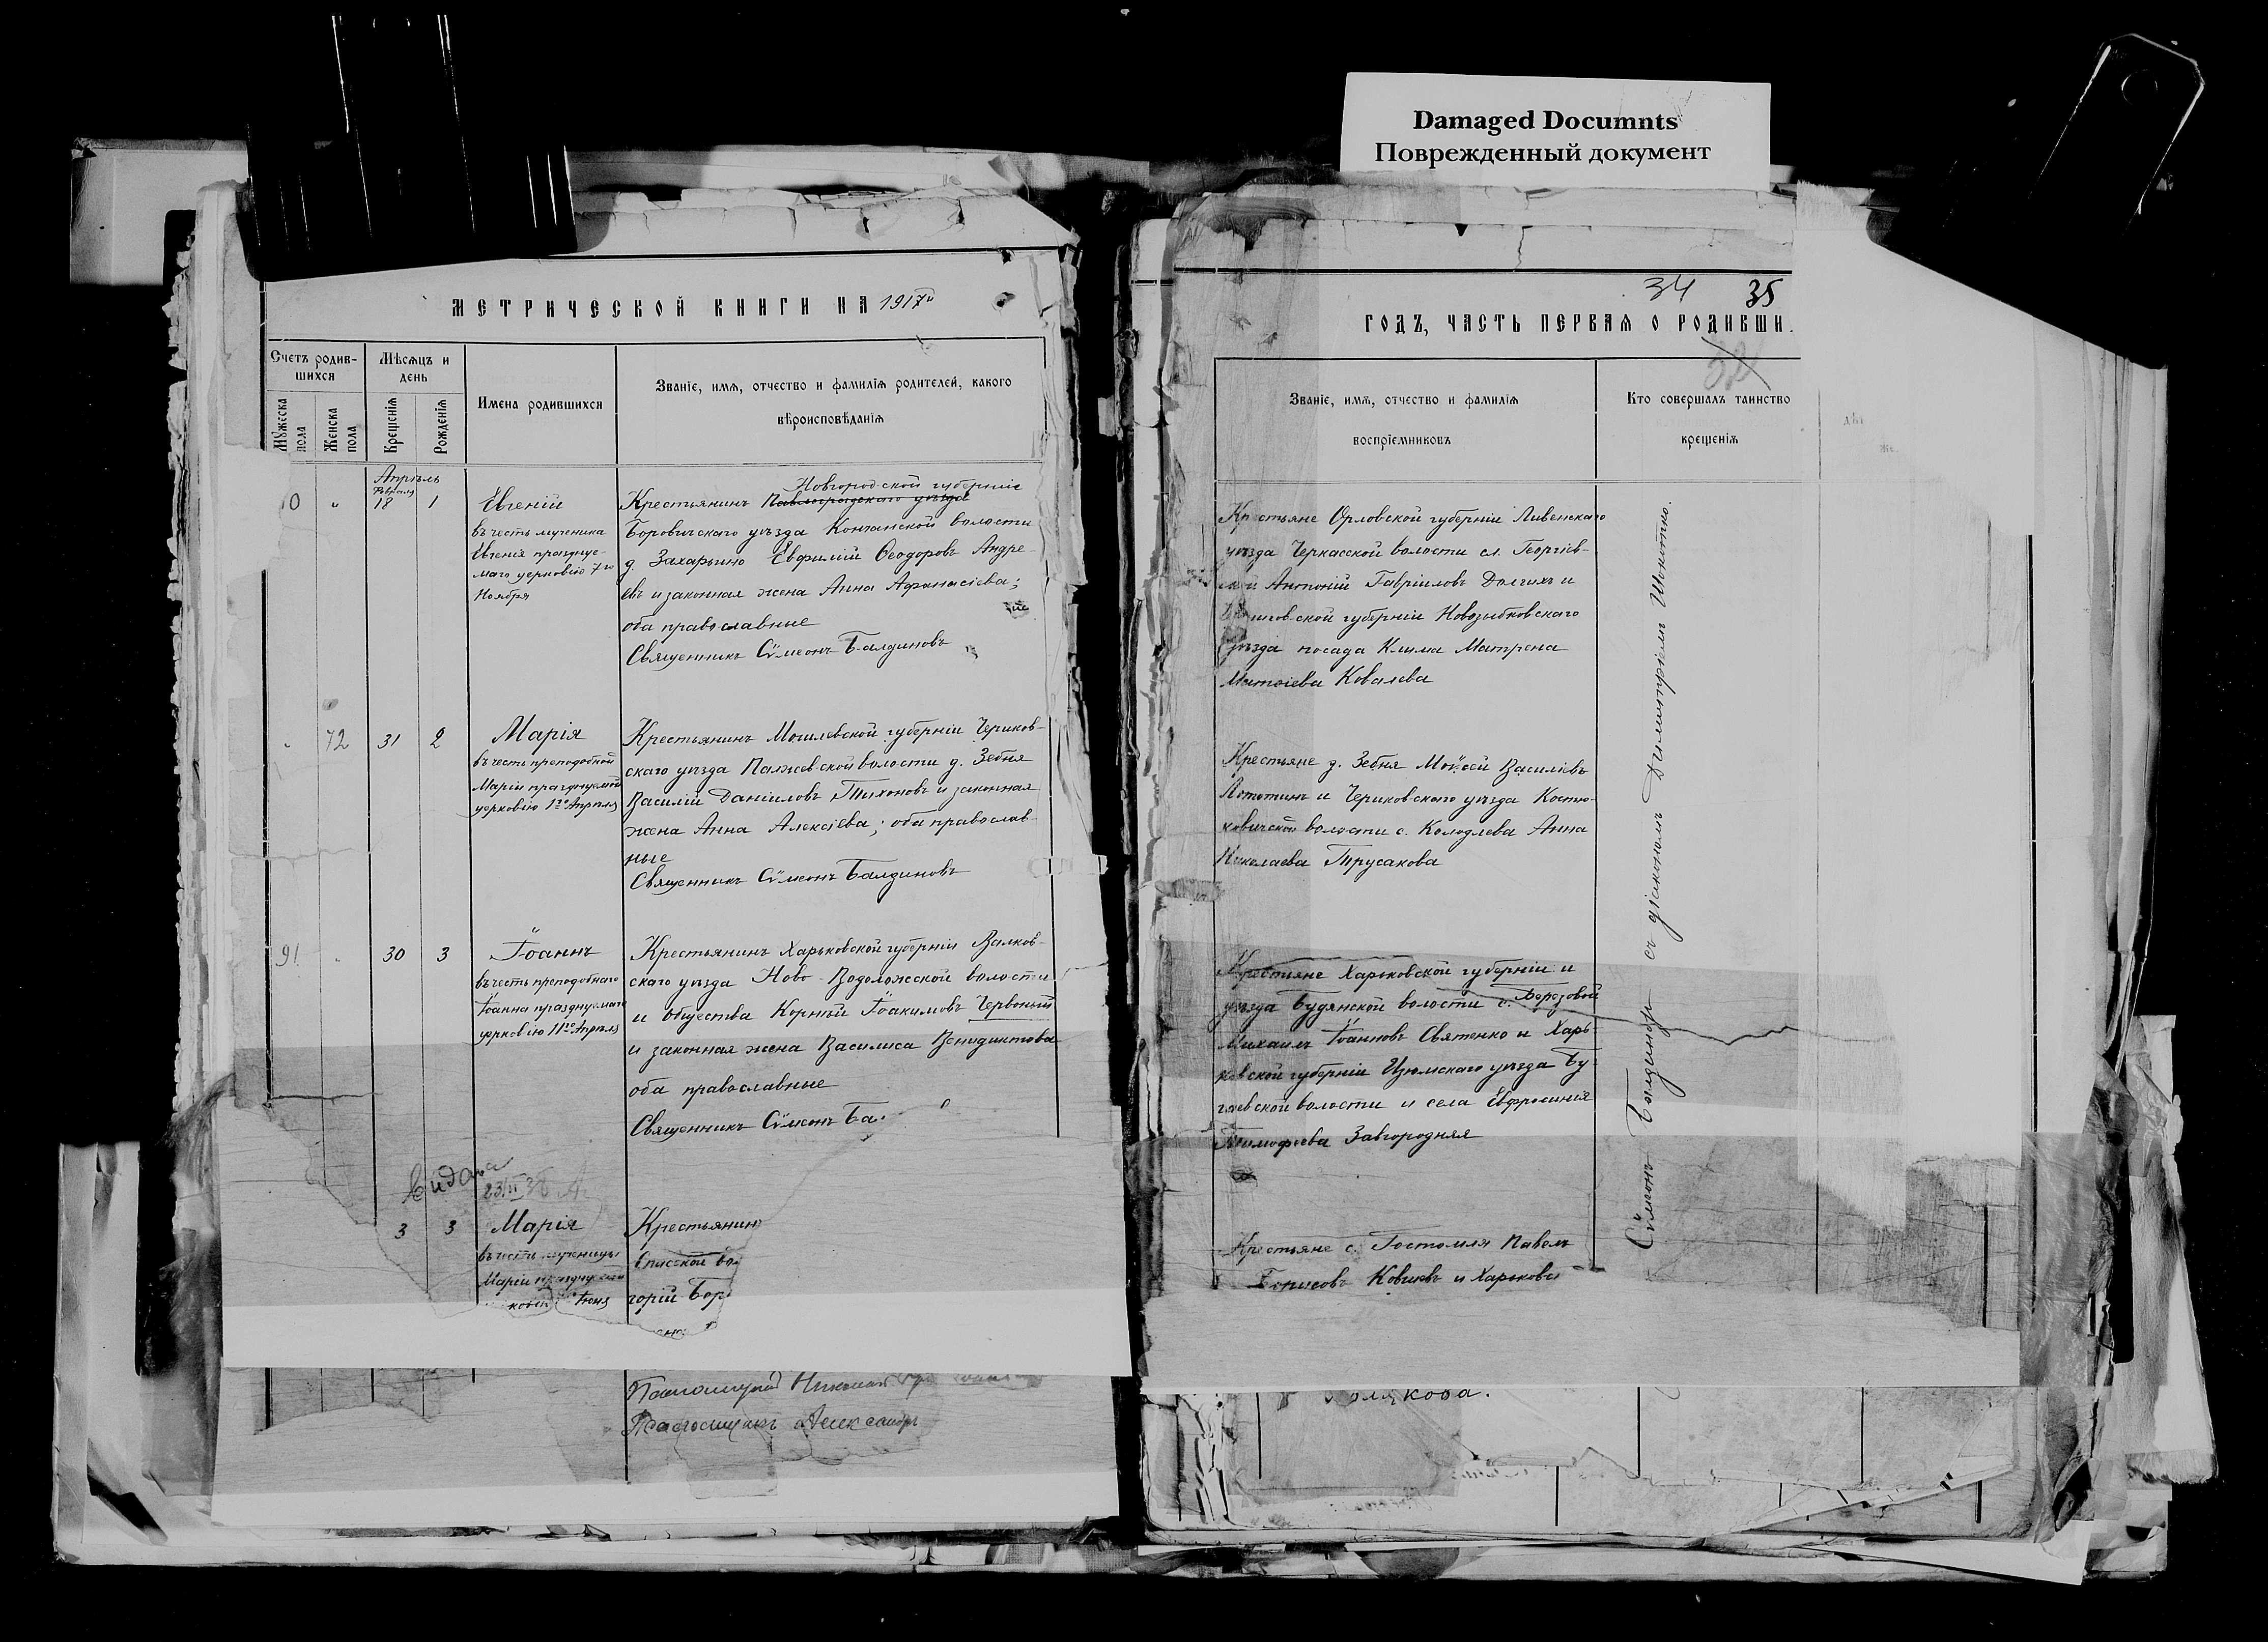 Damaged Documnts
Поврежденный документ
МЕТРИЧЕСКОЙ КНИГИ НА 1917й
Счетъ родив-
шихся
Мѣсяцъ и
день
Мужеска
пола
Женска
пола
Крещенія
Рожденія
Имена родившихся
Званіе, имя, отчество и фамилія родителей, какого
вѣроисповѣданія
Апрѣль
0 " 18 1
Евгеній
въ честь мученика
Евгенія празднуе-
маго церковію 7го
Ноября
Новгородской губерніи
Крестьянинъ Павлоградскаго уѣзда
Боровичскаго уѣзда Кончанской волости
д. Захарьино Евфимій Ѳеодоровъ Андре-
евъ и законная жена Анна Афанасіева;
оба православные
Священникъ Сѵмеонъ Балдиновъ
" 72 31 2
Марія
въ честь преподобной
Маріи празднуемой
церковію 1го Апрѣля
Крестьянинъ Могилевской губерніи Чериков-
скаго уѣзда волости д. Зебня
Василій Даніиловъ Тихоновъ и законная
жена Анна Алексіева; оба православ-
ные
Священникъ Сѵмеонъ Балдиновъ
91 " 30 3
Іоаннъ
въ честь преподобнаго
Іоанна празднуемаго
церковію 11го Апрѣля
Крестьянинъ Харьковской губерніи Валков-
скаго уѣзда Ново-Водоложской волости
и общества Корнѣй Іоакимовъ Червоный
и законная жена Василиса Венидиктова
оба православные
Священникъ Сѵмеонъ Ба
видана
23/II 38
3 3
Марія
въ честь мученицы
Маріи
Іюня
Крестьянин
Спасской во
горій Бор
Николай
Александр
34 35
ГОДЪ, ЧАСТЬ ПЕРВАЯ О РОДИВШИ
Званіе, имя, отчество и фамилія
воспріемниковъ
Кто совершалъ таинство
крещенія
Крестьяне Орловской губерніи Ливенскаго
уѣзда Черкасской волости сл. Георгіев-
Антоній Гавріиловъ Долгихъ и
Черниговской губерніи Новозыбковскаго
уѣзда посада Клима Матрена
Матѳіева Ковалева
Крестьяне д. Зебня Моѵсей Василіевъ
и Чериковскаго уѣзда Костю-
ковичской волости с. Колодлева Анна
Николаева Трусакова
Крестьяне Харьковской губерніи и
уѣзда Будянской волости с. Березовой
Михаилъ Іоанновъ Святенко и Харь-
ковской губерніи Изюмскаго уѣзда Бу-
гаевской волости и села Евфросинія
Тимофіева Завгородняя
Крестьяне с. Гостомля Павелъ
Борисовъ и Харькова
олякова.
Сѵмеонъ Балдиновъ съ діакономъ Димитріемъ Шокотко.